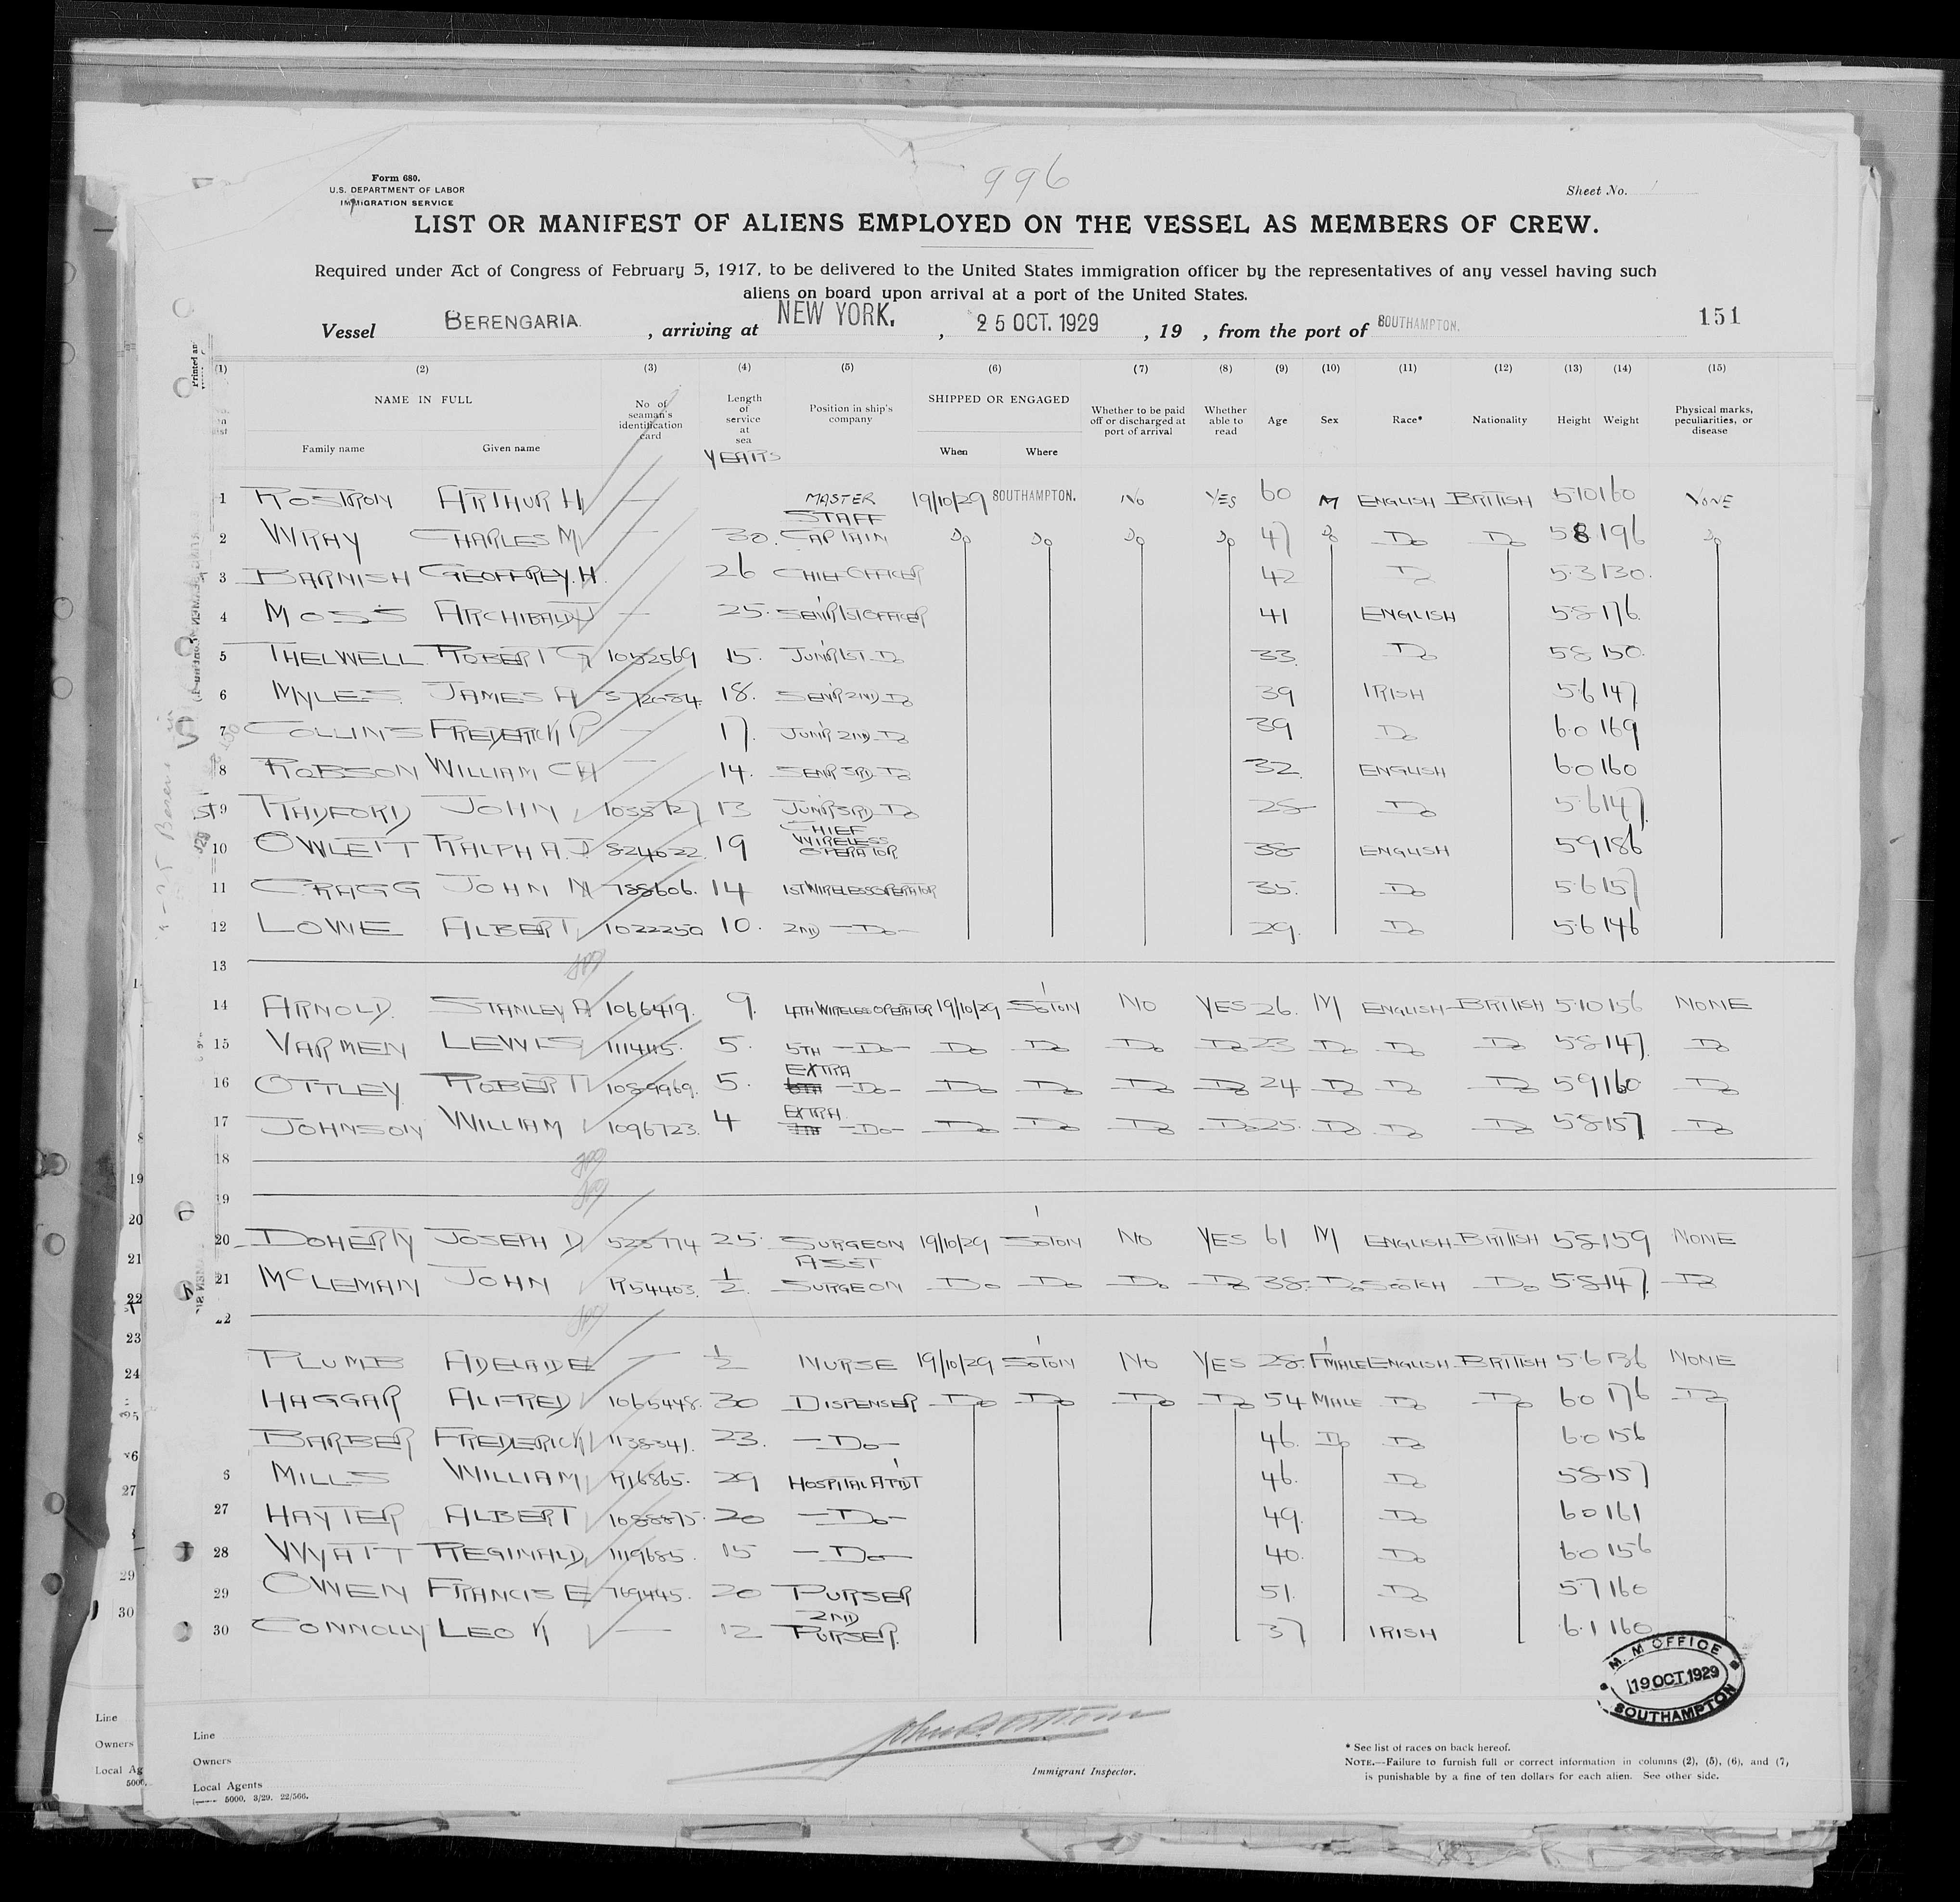 996
Form 680.
U.S. DEPARTMENT OF LABOR
IMMIGRATION SERVICE
Sheet No. 1
LIST OR MANIFEST OF ALIENS EMPLOYED ON THE VESSEL AS MEMBERS OF CREW.
Required under Act of Congress of February 5, 1917, to be delivered to the United States immigration officer by the representatives of any vessel having such
aliens on board upon arrival at a port of the United States.
Vessel BERENGARIA , arriving at NEW YORK. , 25 OCT. 1929 , 19 , from the port of SOUTHAMPTON. 151
(1) (2) (3) (4) (5) (6) (7) (8) (9) (10) (11) (12) (13) (14) (15)
NAME IN FULL No. of seaman's identification card Length of service at sea YEARS Position in ship's company SHIPPED OR ENGAGED Whether to be paid off or discharged at port of arrival Whether able to read Age Sex Race* Nationality Height Weight Physical marks, peculiarities, or disease
Family name Given name When Where
1 ROSTRON ARTHUR H — MASTER 19/10/29 SOUTHAMPTON. NO YES 60 M ENGLISH BRITISH 5.10 160 NONE
2 WRAY CHARLES M 30. STAFF CAPTAIN Do Do Do Do 47 Do Do Do 5 8 196 Do
3 BARNISH GEOFFREY. H. 26 CHIEF OFFICER 42 Do 5.3 130.
4 MOSS ARCHIBALD J — 25. SEN'R 1ST OFFICER 41 ENGLISH 5 8 176.
5 THELWELL ROBERT G 1052569 15. JUN'R 1ST Do 33. Do 5 8 150.
6 MYLES JAMES A 18. SEN'R 2ND Do 39 IRISH 5.6 147
7 COLLINS FREDERICK P — 17. JUN'R 2ND Do 39 Do 6.0 169
8 ROBSON WILLIAM C H — 14. SENR 3RD Do 32. ENGLISH 6.0 160
9 RADFORD JOHN 13 JUN'R 3RD Do 28 Do 5.6 147
10 OWLETT RALPH A. J. 824622. 19 CHIEF WIRELESS OPERATOR 38 ENGLISH 5 9 186
11 CRAGG JOHN M 788606. 14 1ST WIRELESS OPERATOR 35. Do 5.6 157
12 LOWE ALBERT 1022250 10. 2ND —Do— 29. Do 5.6 146
13
14 ARNOLD. STANLEY A 1066419. 9. 4TH WIRELESS OPERATOR 19/10/29 SO'TON NO YES 26. M ENGLISH BRITISH 5.10 156 NONE
15 VARMEN LEWIS 1114115. 5. 5TH —Do— Do Do Do Do 23 Do Do Do 5 8 147. Do
16 OTTLEY ROBERT 1089969. 5. EXTRA —Do— Do Do Do Do 24 Do Do Do 5 9 160 Do
17 JOHNSON WILLIAM 1096723. 4 EXTRA. —Do— Do Do Do Do 25. Do Do Do 5 8 157 Do
18
19
20 DOHERTY JOSEPH D 523774 25. SURGEON 19/10/29 SO'TON NO YES 61 M ENGLISH BRITISH 5 8 159 NONE
21 McLEMAN JOHN R54403. 1/2. ASST SURGEON Do Do Do Do 38. Do SCOTCH Do 5.8 147. Do
22
PLUMB ADELAIDE — 1/2 NURSE 19/10/29 SO'TON NO YES 28. F'MALE ENGLISH BRITISH 5.6 136 NONE
HAGGAR ALFRED 1065448. 30 DISPENSER Do Do Do Do 54 MALE Do Do 6.0 176 Do
BARBER FREDERICK 1138341. 23. —Do— 46. Do Do 6.0 156
MILLS WILLIAM R16865. 29 HOSPITAL AT'DT 46. Do 5 8 157
27 HAYTER ALBERT 1088875. 20 —Do— 49. Do 6.0 161
28 WYATT REGINALD 1119685. 15 —Do— 40. Do 6.0 156
29 OWEN FRANCIS E 769445. 20 PURSER 51. Do 5.7 160
30 CONNOLLY LEO K — 12 2ND PURSER. 37 IRISH 6.1 160
M. M OFFICE
19 OCT. 1929
SOUTHAMPTON
Line
Owners
Local Agents
5000. 3/29. 22/566.
Immigrant Inspector.
* See list of races on back hereof.
NOTE.—Failure to furnish full or correct information in columns (2), (5), (6), and (7,
is punishable by a fine of ten dollars for each alien. See other side.